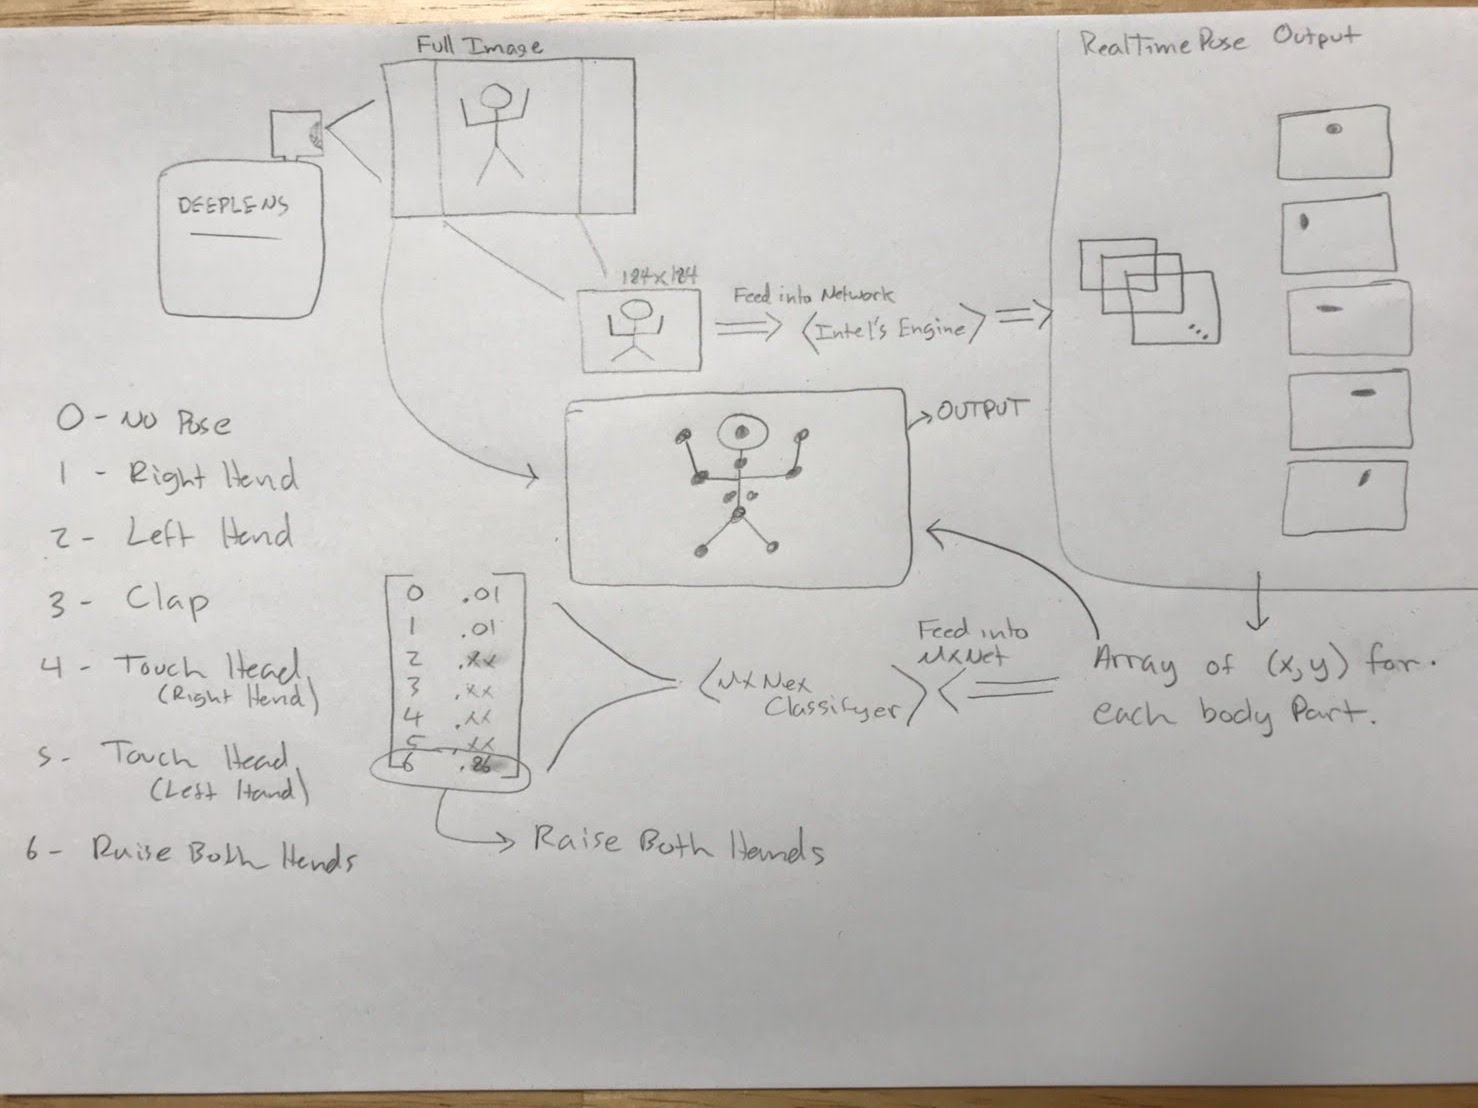 Full Image
RealTimePose Output
DEEPLENS
184x184
Feed into Network
<Intel's Engine>
OUTPUT
0 - No Pose
1 - Right Hand
2 - Left Hand
3 - Clap
4 - Touch Head
(Right Hand)
5 - Touch Head
(Left Hand)
6 - Raise Both Hands
0 .01
1 .01
2 .xx
3 .xx
4 .xx
5 .xx
6 .86
Raise Both Hands
<MxNex
Classifyer>
Feed into
MxNet
Array of (x,y) for
each body Part.